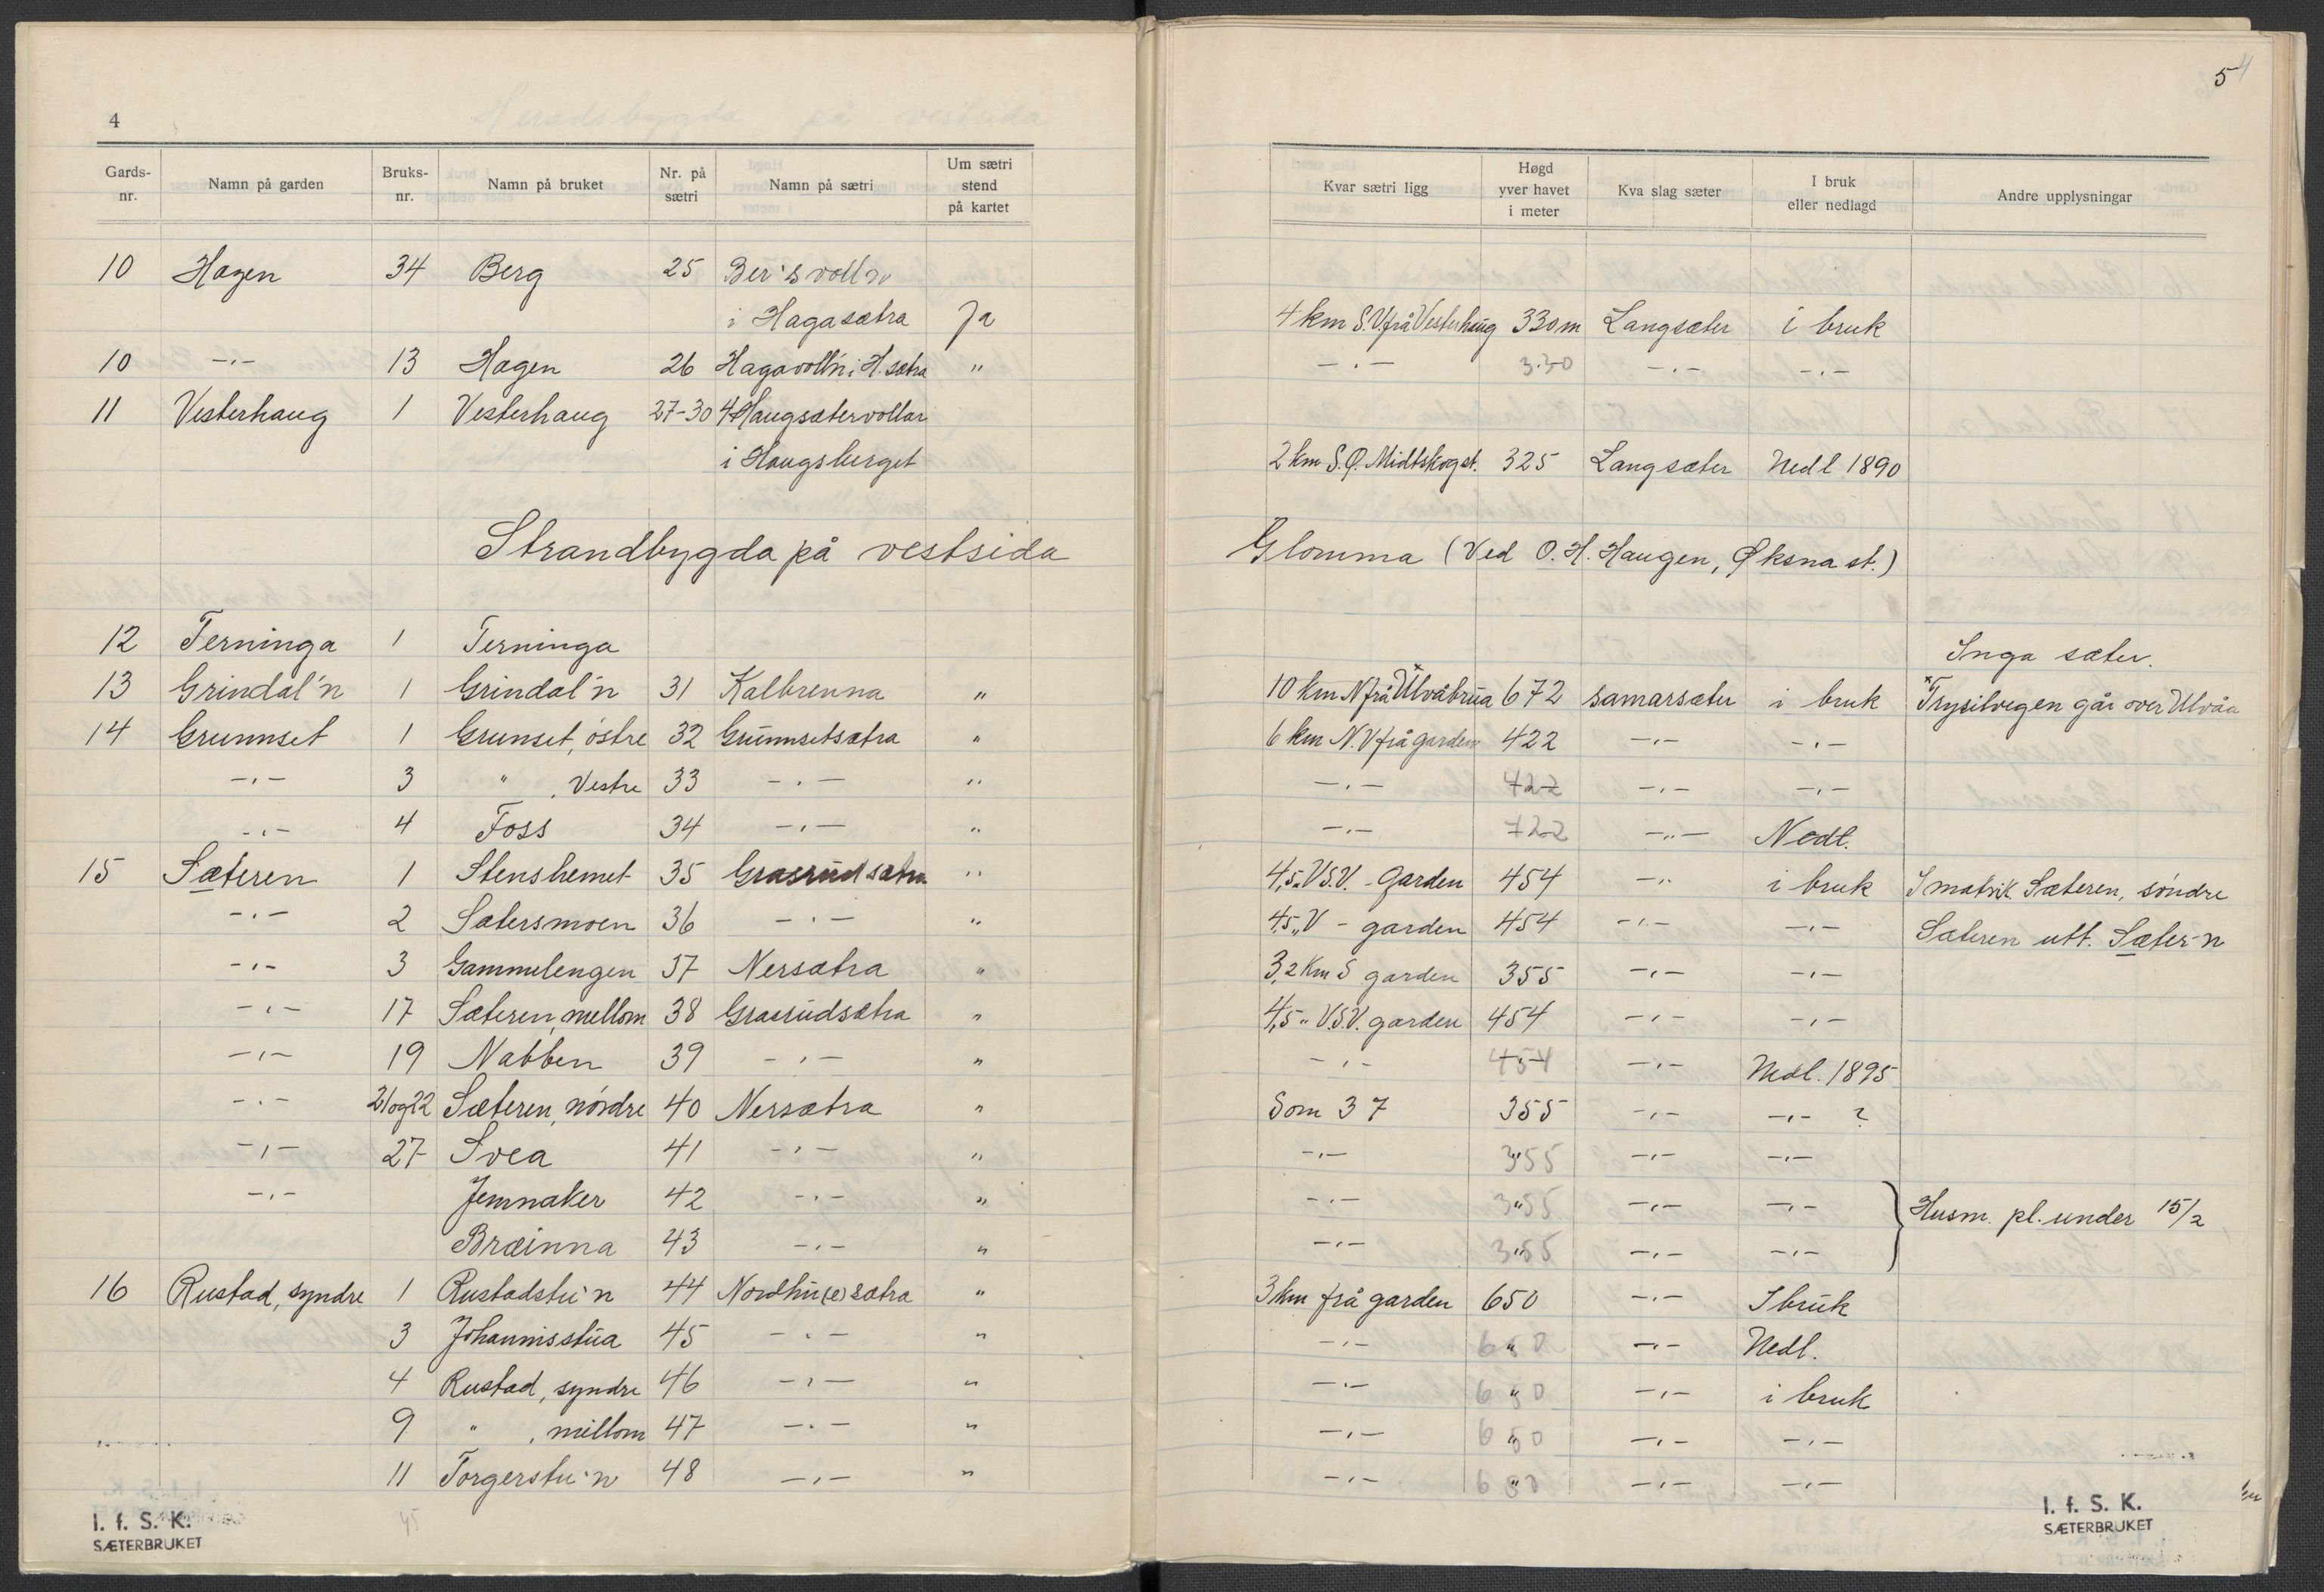 4
Gards-nr. Namn på garden Bruks-nr. Namn på bruket Nr. på sætri Namn på sætri Um sætri stend på kartet
10 Hagen 34 Berg 25 Ber's voll'n
i Hagasætra Ja
10 -"- 13 Hagen 26 Hagavoll'n i H.sætra "
11 Vesterhaug 1 Vesterhaug 27-30 4 Haugsætervollar
i Haugsberget
Strandbygda på vestsida
12 Terninga 1 Terninga
13 Grindal'n 1 Grindal'n 31 Kalbrenna "
14 Grunnset 1 Grunset, östre 32 Grunnsetsætra "
-"- 3 " , Vestre 33 -"- "
-"- 4 Foss 34 -"- "
15 Sæteren 1 Stenshemet 35 Grasrudsætra "
-"- 2 Sætersmoen 36 -"- "
-"- 3 Gammelengen 37 Nersætra "
-"- 17 Sæteren, mellom 38 Grasrudsætra "
-"- 19 Nabben 39 -"- "
-"- 21 og 22 Sæteren, nördre 40 Nersætra "
-"- 27 Svea 41 -"- "
-"- Jemnaker 42 -"- "
Bræinna 43 -"- "
16 Rustad, syndre 1 Rustadstu'n 44 Nordhu(e)sætra "
3 Johannisstua 45 -"- "
4 Rustad, syndre 46 -"- "
9 " , millom 47 -"- "
11 Torgerstu'n 48 -"- "
45
I. f. S. K.
SÆTERBRUKET
5 4
Kvar sætri ligg Høgd yver havet i meter Kva slag sæter I bruk eller nedlagd Andre upplysningar
4 km S.V frå Vesterhaug 330 m Langsæter i bruk
-"- 330 -"- -"-
2 km S.Ø. Midtskog st. 325 Langsæter Nedl 1890
Glomma (Ved O. H. Haugen, Øksna st.)
Inga sæter.
10 km N frå *Ulvåbrua 672 samarsæter i bruk *Trysilvegen går over Ulvåa
6 km N.V frå garden 422 -"- -"-
-"- 422 -"- -"-
-"- 722 -"- Nedl.
4,5 " V.S.V. - garden 454 -"- i bruk I matrik. Sæteren, söndre
4,5 " V - garden 454 -"- -"- Sæteren utt. Sæter'n
3,2 km S garden 355 -"- -"-
4,5 " V.S.V. garden 454 -"- -"-
-"- 454 -"- Nedl. 1895
Som 37 355 -"- -"- ?
-"- 355 -"- -"-
-"- 355 -"- -"- } Husm. pl. under 15/2
-"- 355 -"- -"-
3 km frå garden 650 -"- I bruk
-"- 650 -"- Nedl.
-"- 650 -"- i bruk
-"- 650 -"- -"-
-"- 650 -"- -"-
I. f. S. K.
SÆTERBRUKET